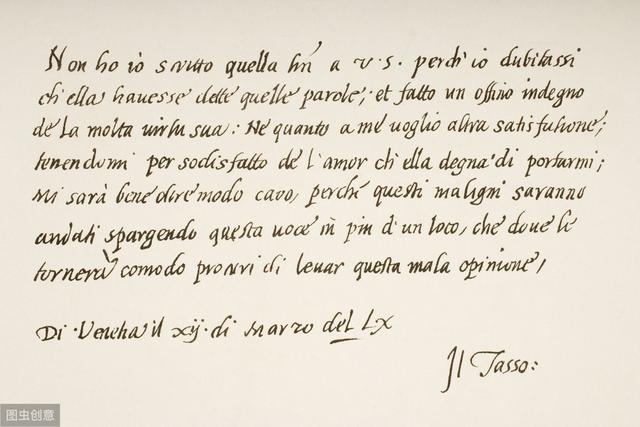 Non ho io scritto quella lrã a V.S. perch'io dubitassi
ch'ella havesse dette quelle parole; et fatto un offitio indegno
de la molta virtu sua: Ne quanto a me voglio altra satisfatione;
tenendomi per sodisfatto de l'amor ch'ella degna di portarmi;
Mi sarà bene oltremodo caro, perché questi maligni saranno
andati spargendo questa voce in piu d'un loco, che dove le
tornerà comodo procuri di levar questa mala opinione,
Di Venetia il xij. di Marzo del LX
Il Tasso:
图虫创意